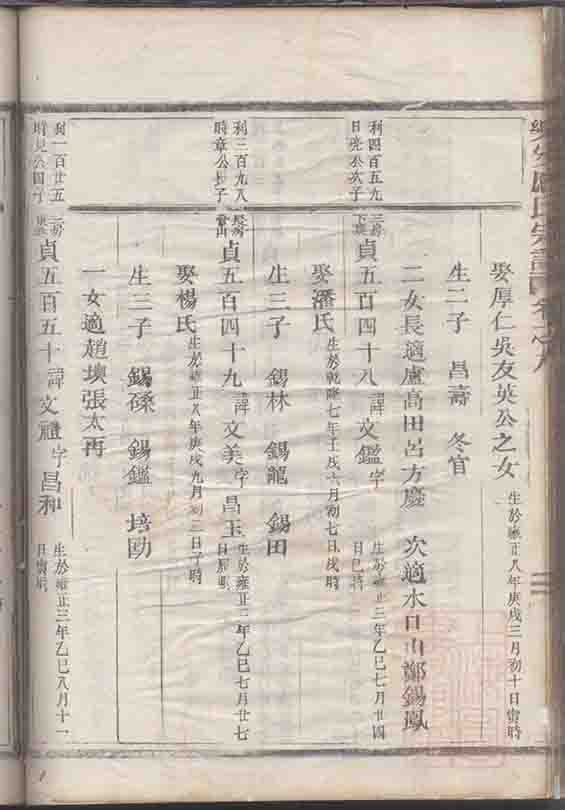 氏宗譜 卷之九
娶厚仁吳友英公之女 生於雍正八年庚戌三月初十日寅時
生二子 昌壽 冬官
二女長適盧高田呂方慶 次適水口山鄭錫鳳
利四百五九
日亮公次子
貞五百四十八 諱文鑑字 生於雍正三年乙巳七月廿四日巳時
娶潘氏 生於乾隆七年壬戌六月初七日戌時
生三子 錫林 錫龍 錫田
利三百九八
時章公長子
貞五百四十九 諱文美字昌玉 生於雍正三年乙巳七月廿七日
娶楊氏 生於雍正八年庚戌九月初三日子時
生三子 錫磉 錫鑑 培勛
一女適趙墺張太再
利一百廿五
時見公四子
貞五百五十 諱文禮字昌和 生於雍正三年乙巳八月十一日寅時